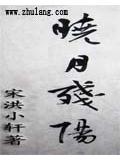 www.zhulang.com
曉月殘陽
宋洪小轩著